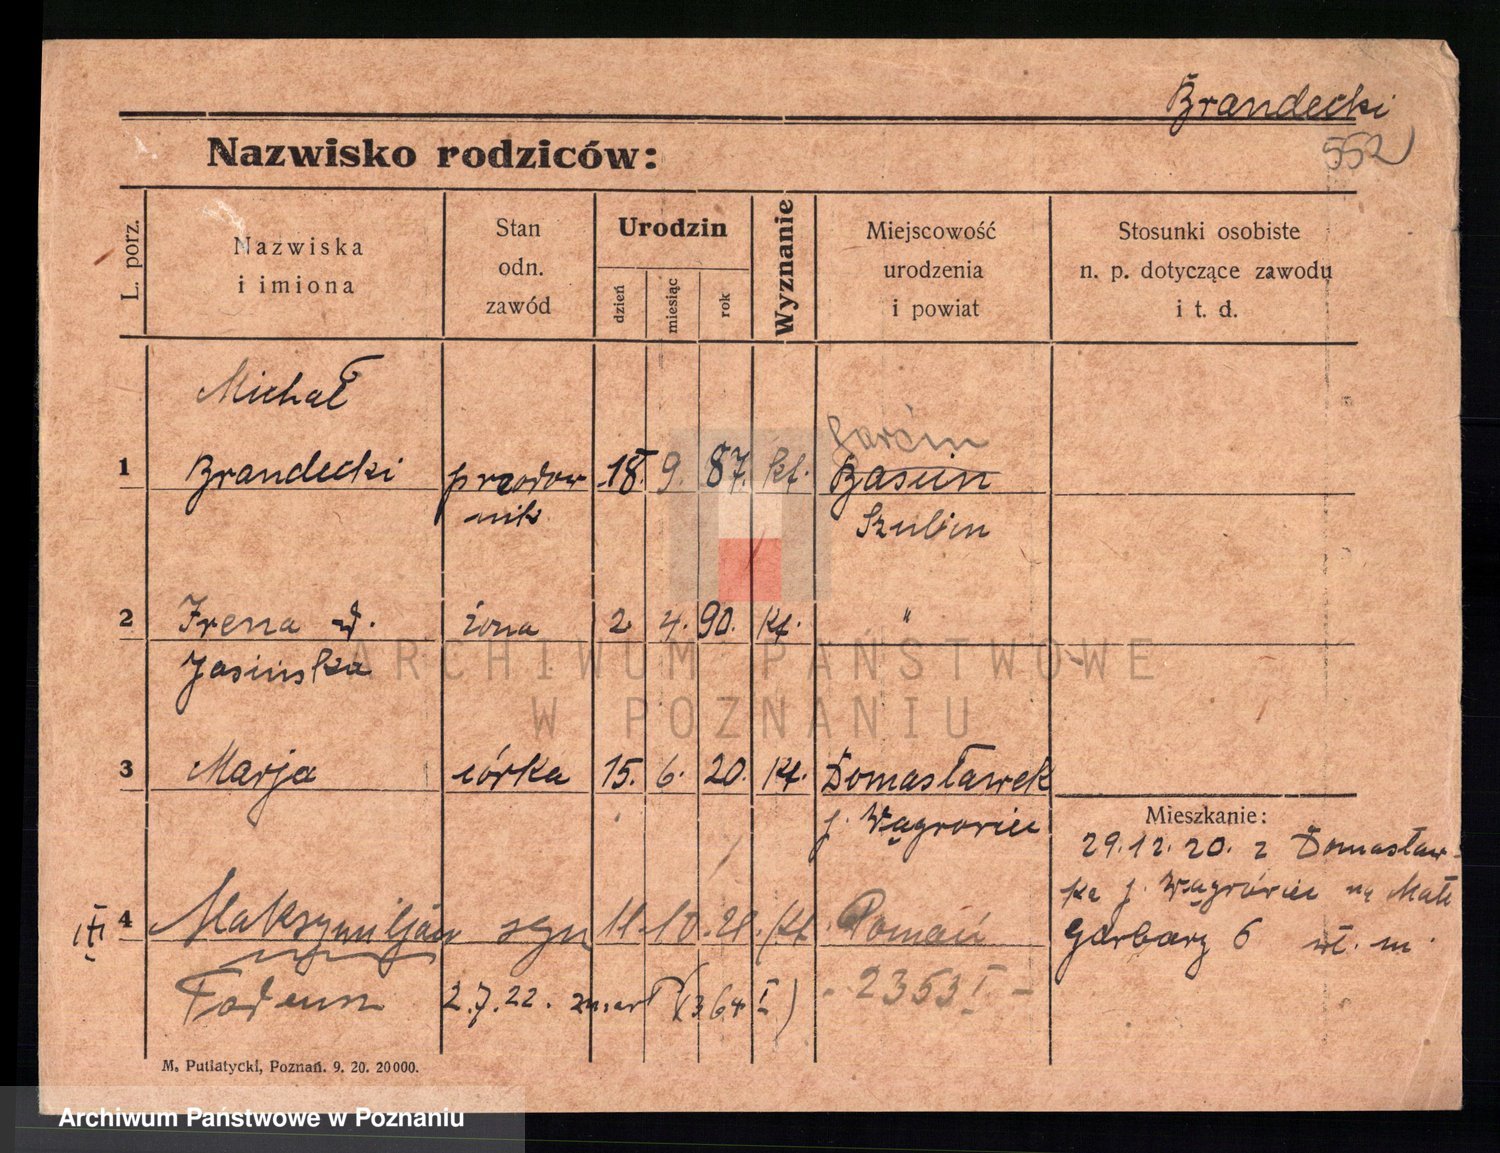 Brandecki
552
Nazwisko rodziców:
L. porz.
Nazwiska
i imiona
Stan
odn.
zawód
Urodzin
dzień
miesiąc
rok
Wyznanie
Miejscowość
urodzenia
i powiat
Stosunki osobiste
n. p. dotyczące zawodu
i t. d.
Michał
Garcin
1 Brandecki przodow 18. 9. 87. kt. Bascin
nik Szubin
2 Irena d. żona 2 4. 90. kt. "
Jasińska
3 Marja córka 15. 6. 20. kt. Domasławek
p. Wągrowiec
Mieszkanie:
29.12.20. z Domasław-
ka p. Wągrówiec na Małe
Garbary 6 wł. m.
4 Maksymiljan syn 11. 10. 21. kt. Poznań
Tadeusz 2.7.22. zmarł (364 I) - 2353 I -
M. Putiatycki, Poznań. 9. 20. 20000.
ARCHIWUM PAŃSTWOWE
W POZNANIU
Archiwum Państwowe w Poznaniu